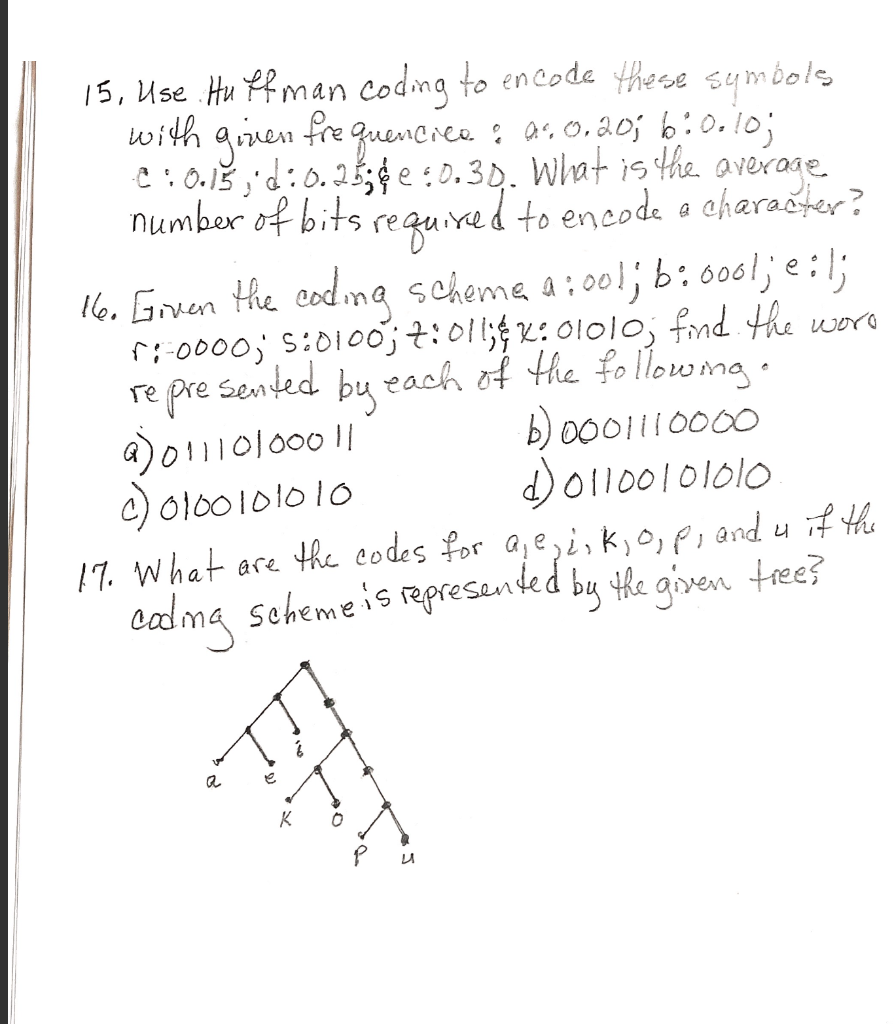 15. Use Huffman coding to encode these symbols
with given frequencies : a: 0.20; b: 0.10;
c: 0.15; d: 0.25; & e: 0.30. What is the average
number of bits required to encode a character?
16. Given the coding scheme a: 001; b: 0001; e: 1;
r: 0000; s: 0100; t: 011; & x: 01010; find the word
represented by each of the following.
a) 01110100011 b) 0001110000
c) 0100101010 d) 01100101010
17. What are the codes for a, e, i, k, o, p, and u if the
coding scheme is represented by the given tree?
i
a e
k o
p u